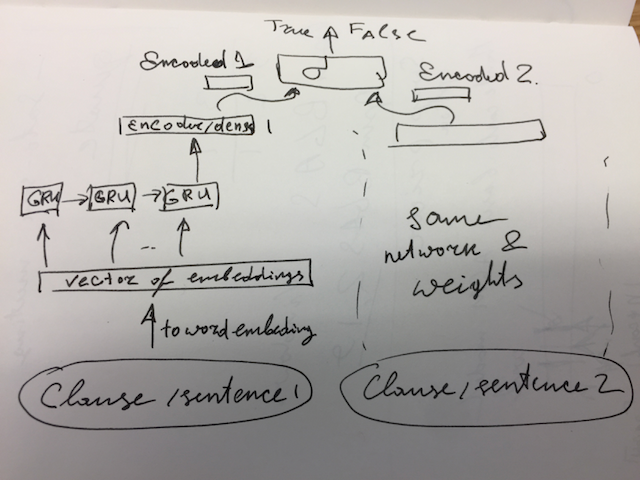 True FAlse
Encoded 1
σ
Encoded 2.
Encodue/dense 1
GRU
GRU
GRU
..
same
network &
weights
vector of embeddings
to word embeding
Clause /sentence 1
Clause, sentence 2